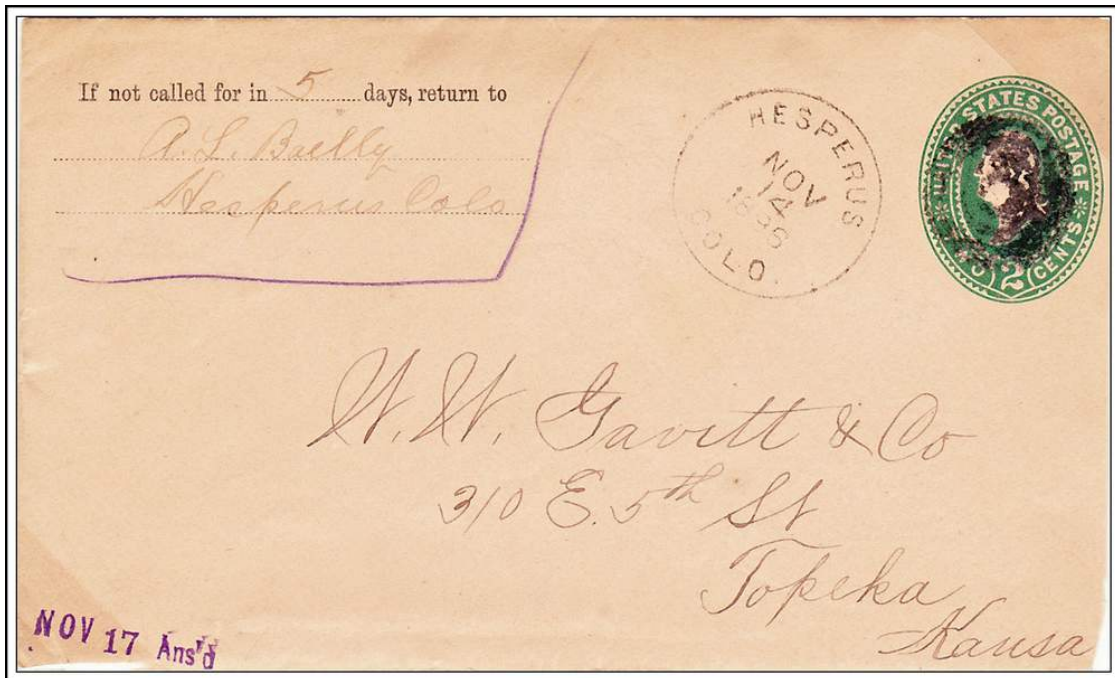 If not called for in 5 days, return to
A. L. Bailly
Hesperus Colo
HESPERUS
NOV
14
COLO.
UNITED STATES POSTAGE
2 CENTS
W. W. Gavitt & Co
310 E. 5th St
Topeka
Kansa
NOV 17 Ans'd